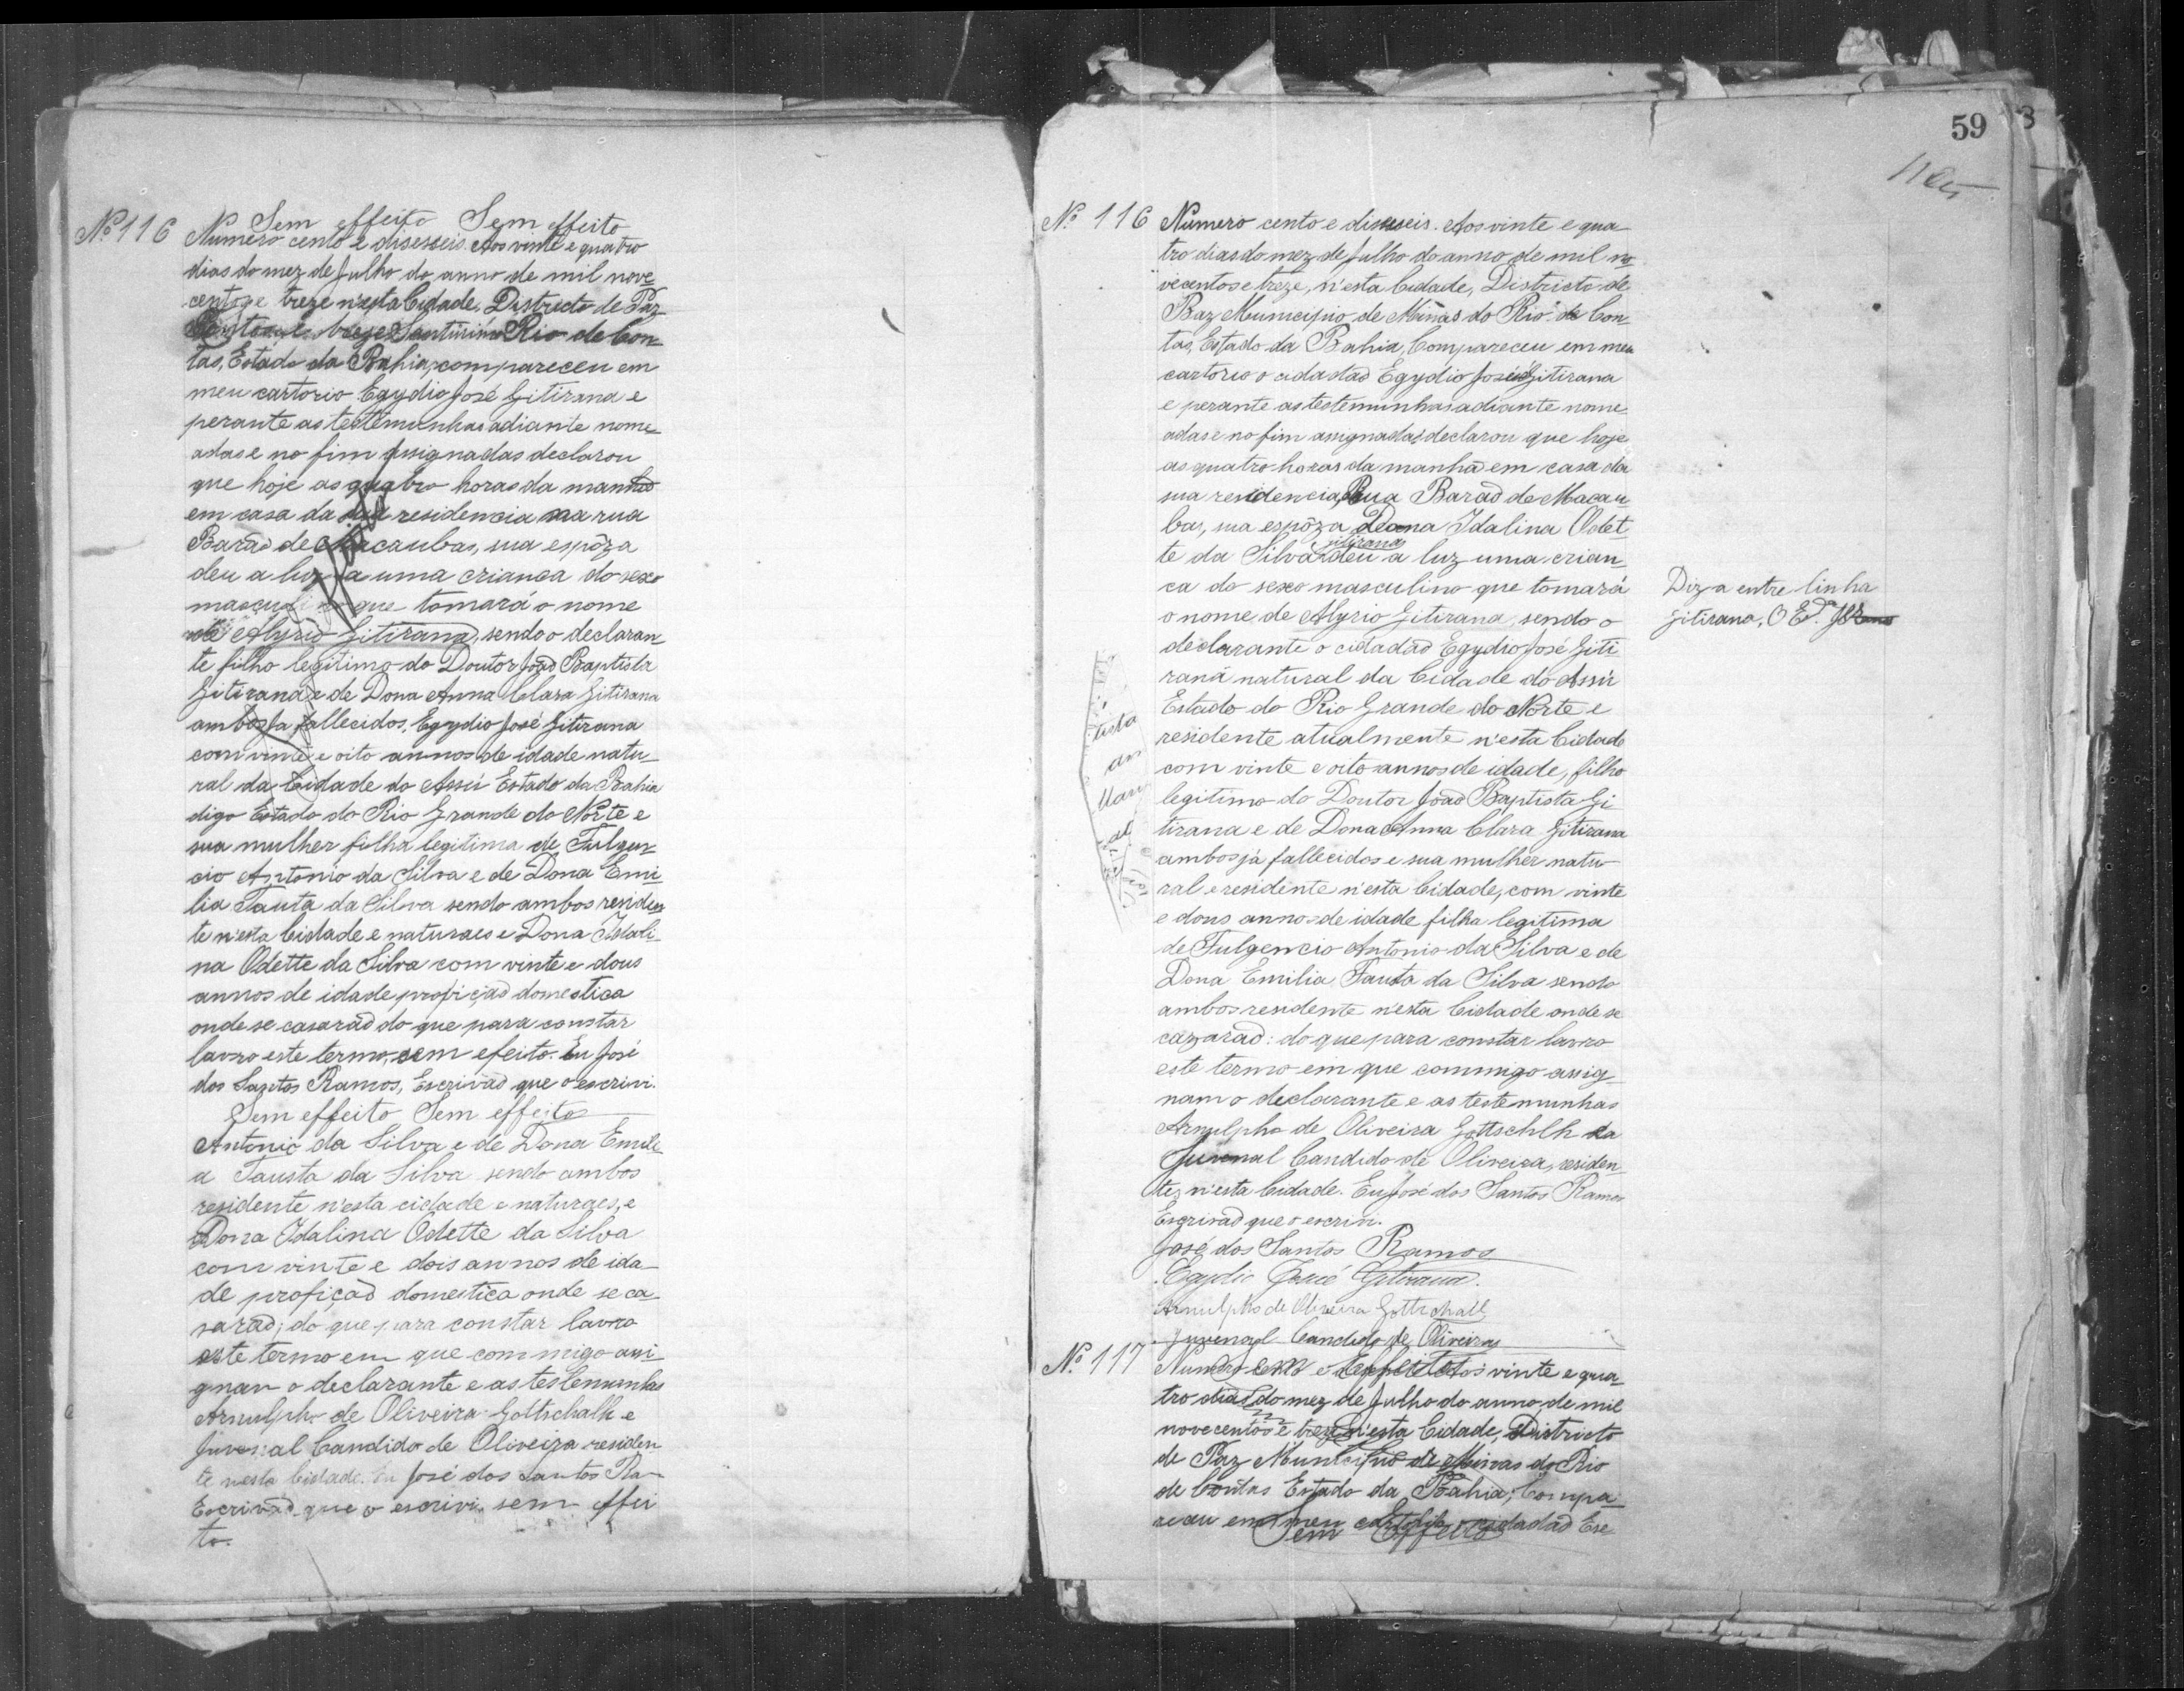 Sem effeito Sem effeito
Nº 116 Numero cento e diseseis. Aos vinte e quatro
dias do mez de Julho do anno de mil nove
centos e treze n'esta Cidade, Districto de Paz
Rio de Con-
tas, Estado da Bahia, compareceu em
meu cartorio Egydio José Gitirana e
perante as testemunhas adiante nome-
adas e no fim assignadas declarou
que hoje as quatro horas da manhã
em casa da sua residencia na rua
Barão de Macaubas, sua espôza
deu a luz a uma crianca do sexo
masculino que tomará o nome
de Alyrio Gitirana, sendo o declaran-
te filho legitimo do Doutor João Baptista
Gitirana e de Dona Anna Clara Gitirana
ambos ja fallecidos, Egydio José Gitirana
com vinte e oito annos de idade natu-
ral da Cidade do Assú Estado da Bahia
digo Estado do Rio Grande do Norte e
sua mulher filha legitima de Fulgen-
cio Antonio da Silva e de Dona Emi-
lia Fauta da Silva sendo ambos residen
te n'esta Cidade e naturaes e Dona Idali-
na Odette da Silva com vinte e dous
annos de idade profição domestica
onde se casarão do que para constar
lavro este termo, sem efeito. Eu José
dos Santos Ramos, Escrivão que o escrivi.
Sem effeito Sem effeito
Antonio da Silva e de Dona Emili-
a Fausta da Silva sendo ambos
residente n'esta cidade e naturaes, e
Dona Idalina Odette da Silva
com vinte e dois annos de ida-
de profição domestica onde se ca-
sarão; do que para constar lavro
este termo em que commigo assi-
gnam o declarante e as testemunhas
Arnulpho de Oliveira Gottschalk e
Juvenal Candido de Oliveira residen
te nesta Cidade. Eu José dos Santos Ra-
Escrivão que o escrivi. sem effei
to.
59
Nº 116 Numero cento e diseseis. Aos vinte e qua-
tro dias do mez de Julho do anno de mil no-
vecentos e treze, n'esta Cidade, Districto de
Paz Municipio de Minas do Rio de Con-
tas, Estado da Bahia, Compareceu em meu
cartorio o cidadão Egydio José Gitirana
e perante as testemunhas adiante nome-
adas e no fim assignadas declarou que hoje
as quatro horas da manhã em casa da
sua residencia, Rua Barão de Macau-
bas, sua espôza Dona Idalina Odet-
Gitirana
te da Silva deu a luz uma crian-
ca do sexo masculino que tomará
o nome de Alyrio Gitirana, sendo o
declarante o cidadão Egydio José Giti-
rana natural da Cidade do Assú
Estado do Rio Grande do Norte e
residente atualmente n'esta Cidade
com vinte e oito annos de idade, filho
legitimo do Doutor João Baptista Gi
tirana e de Dona Anna Clara Gitirana
ambos já fallecidos e sua mulher natu-
ral e residente n'esta Cidade, com vinte
e dous annos de idade filha legitima
de Fulgencio Antonio da Silva e de
Dona Emilia Fauta da Silva sendo
ambos residente n'esta Cidade onde se
cazarão: do que para constar lavro
este termo em que commigo assig-
nam o declarante e as testemunhas
Arnulpho de Oliveira Gottschlh
Juvenal Candido de Oliveira, residen-
tes n'esta Cidade. Eu José dos Santos Ramos
Escrivão que o escrivi.
José dos Santos Ramos
Egydio José Gitirana.
Arnulpho de Oliveira Gottschall
Juvenal Candido de Oliveira
Diz a entre linha
Gitirana, O
Nº 117 Numero vinte e qua-
tro dias do mez de Julho do anno de mil
novecentos e treze n'esta Cidade, Districto
de Paz Municipio de Minas do Rio
de Contas Estado da Bahia; Compa-
receu em meu cartorio cidadão Ese
Sem Effeito